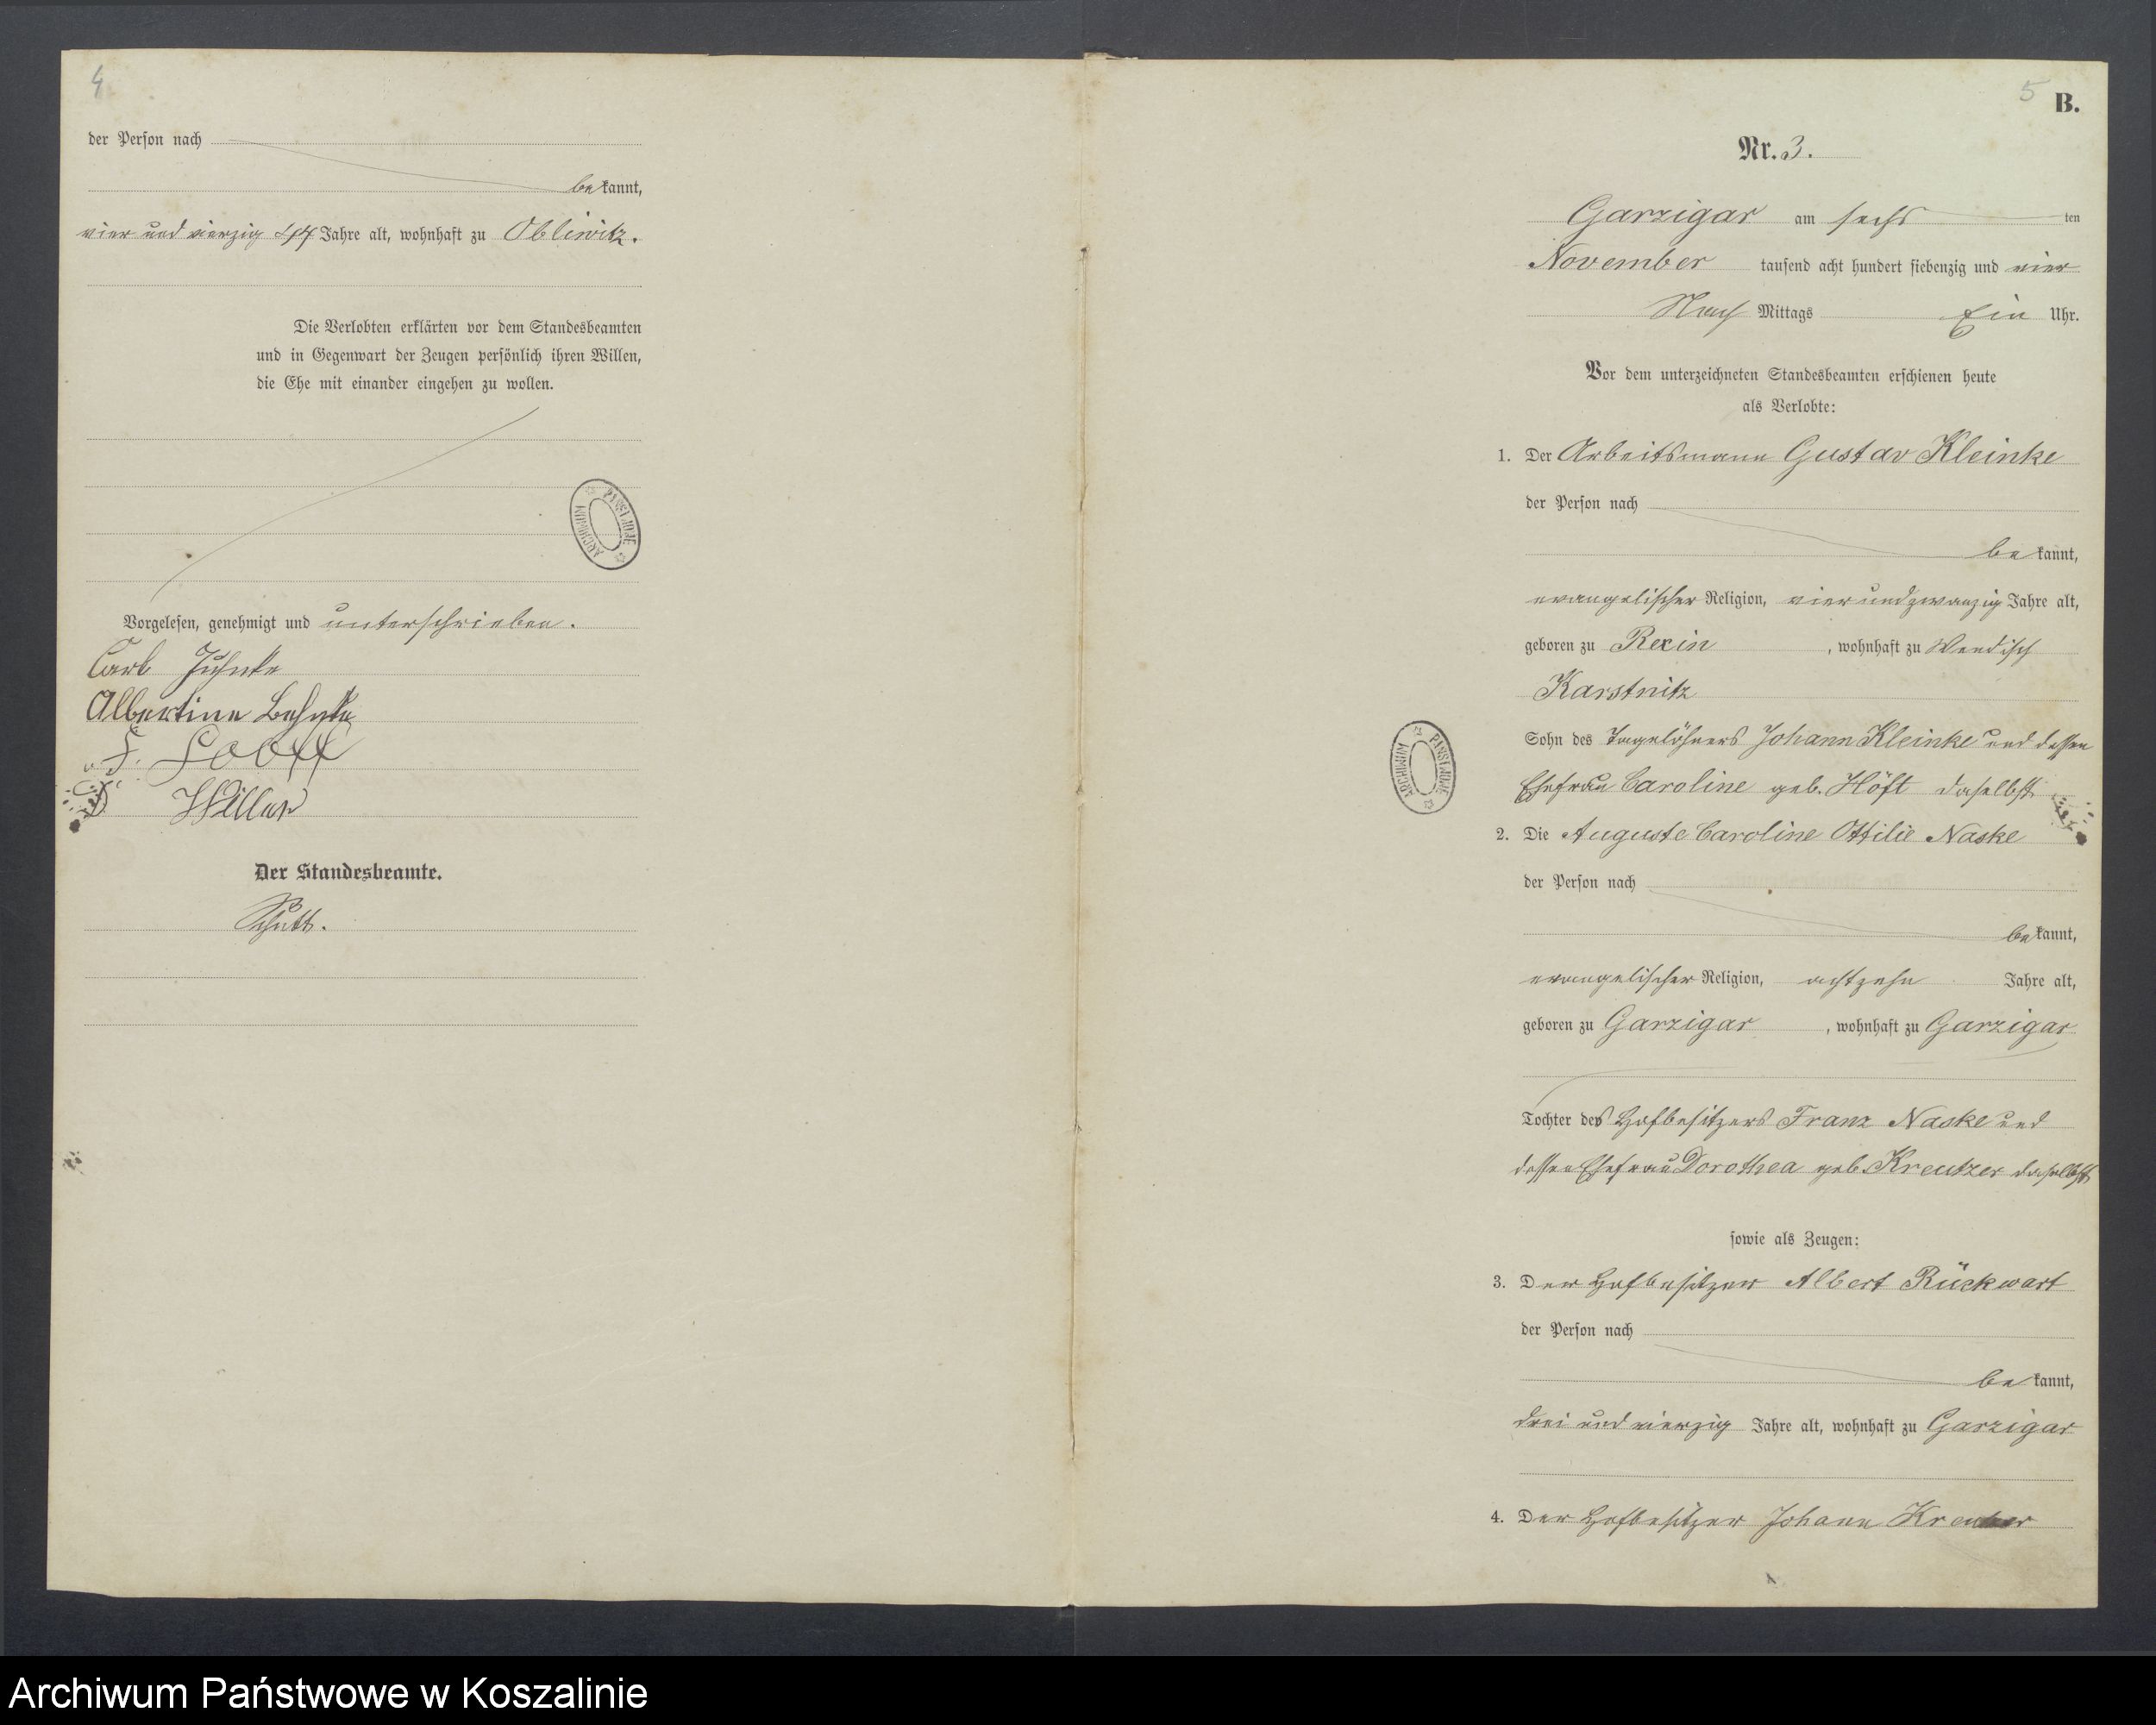 4
der Person nach
bekannt,
vier und vierzig 44 Jahre alt, wohnhaft zu Obliwitz.
Die Verlobten erklärten vor dem Standesbeamten
und in Gegenwart der Zeugen persönlich ihren Willen,
die Ehe mit einander eingehen zu wollen.
ARCHIWUM PAŃSTWOWE
Vorgelesen, genehmigt und unterschrieben.
Carl Juhnke
Albertine Behnke
F. Looff
Willer
Der Standesbeamte.
Schütt.
5 B.
Nr. 3.
Garzigar am sechsten
November tausend acht hundert siebenzig und vier
Nach Mittags Ein Uhr.
Vor dem unterzeichneten Standesbeamten erschienen heute
als Verlobte:
1. Der Arbeitsmann Gustav Kleinke
der Person nach
bekannt,
evangelischer Religion, vier und zwanzig Jahre alt,
geboren zu Rexin, wohnhaft zu Wendisch
Karstnitz
ARCHIWUM PAŃSTWOWE
Sohn des Tagelöhners Johann Kleinke und dessen
Ehefrau Caroline geb. Höft daselbst
2. Die Auguste Caroline Ottilie Naske
der Person nach
bekannt,
evangelischer Religion, achtzehn Jahre alt,
geboren zu Garzigar, wohnhaft zu Garzigar
Tochter des Hofbesitzers Franz Naske und
dessen Ehefrau Dorothea geb. Kreutzer daselbst
sowie als Zeugen:
3. Der Hofbesitzer Albert Rückwart
der Person nach
bekannt,
drei und vierzig Jahre alt, wohnhaft zu Garzigar
4. Der Hofbesitzer Johann Kreutzer
Archiwum Państwowe w Koszalinie